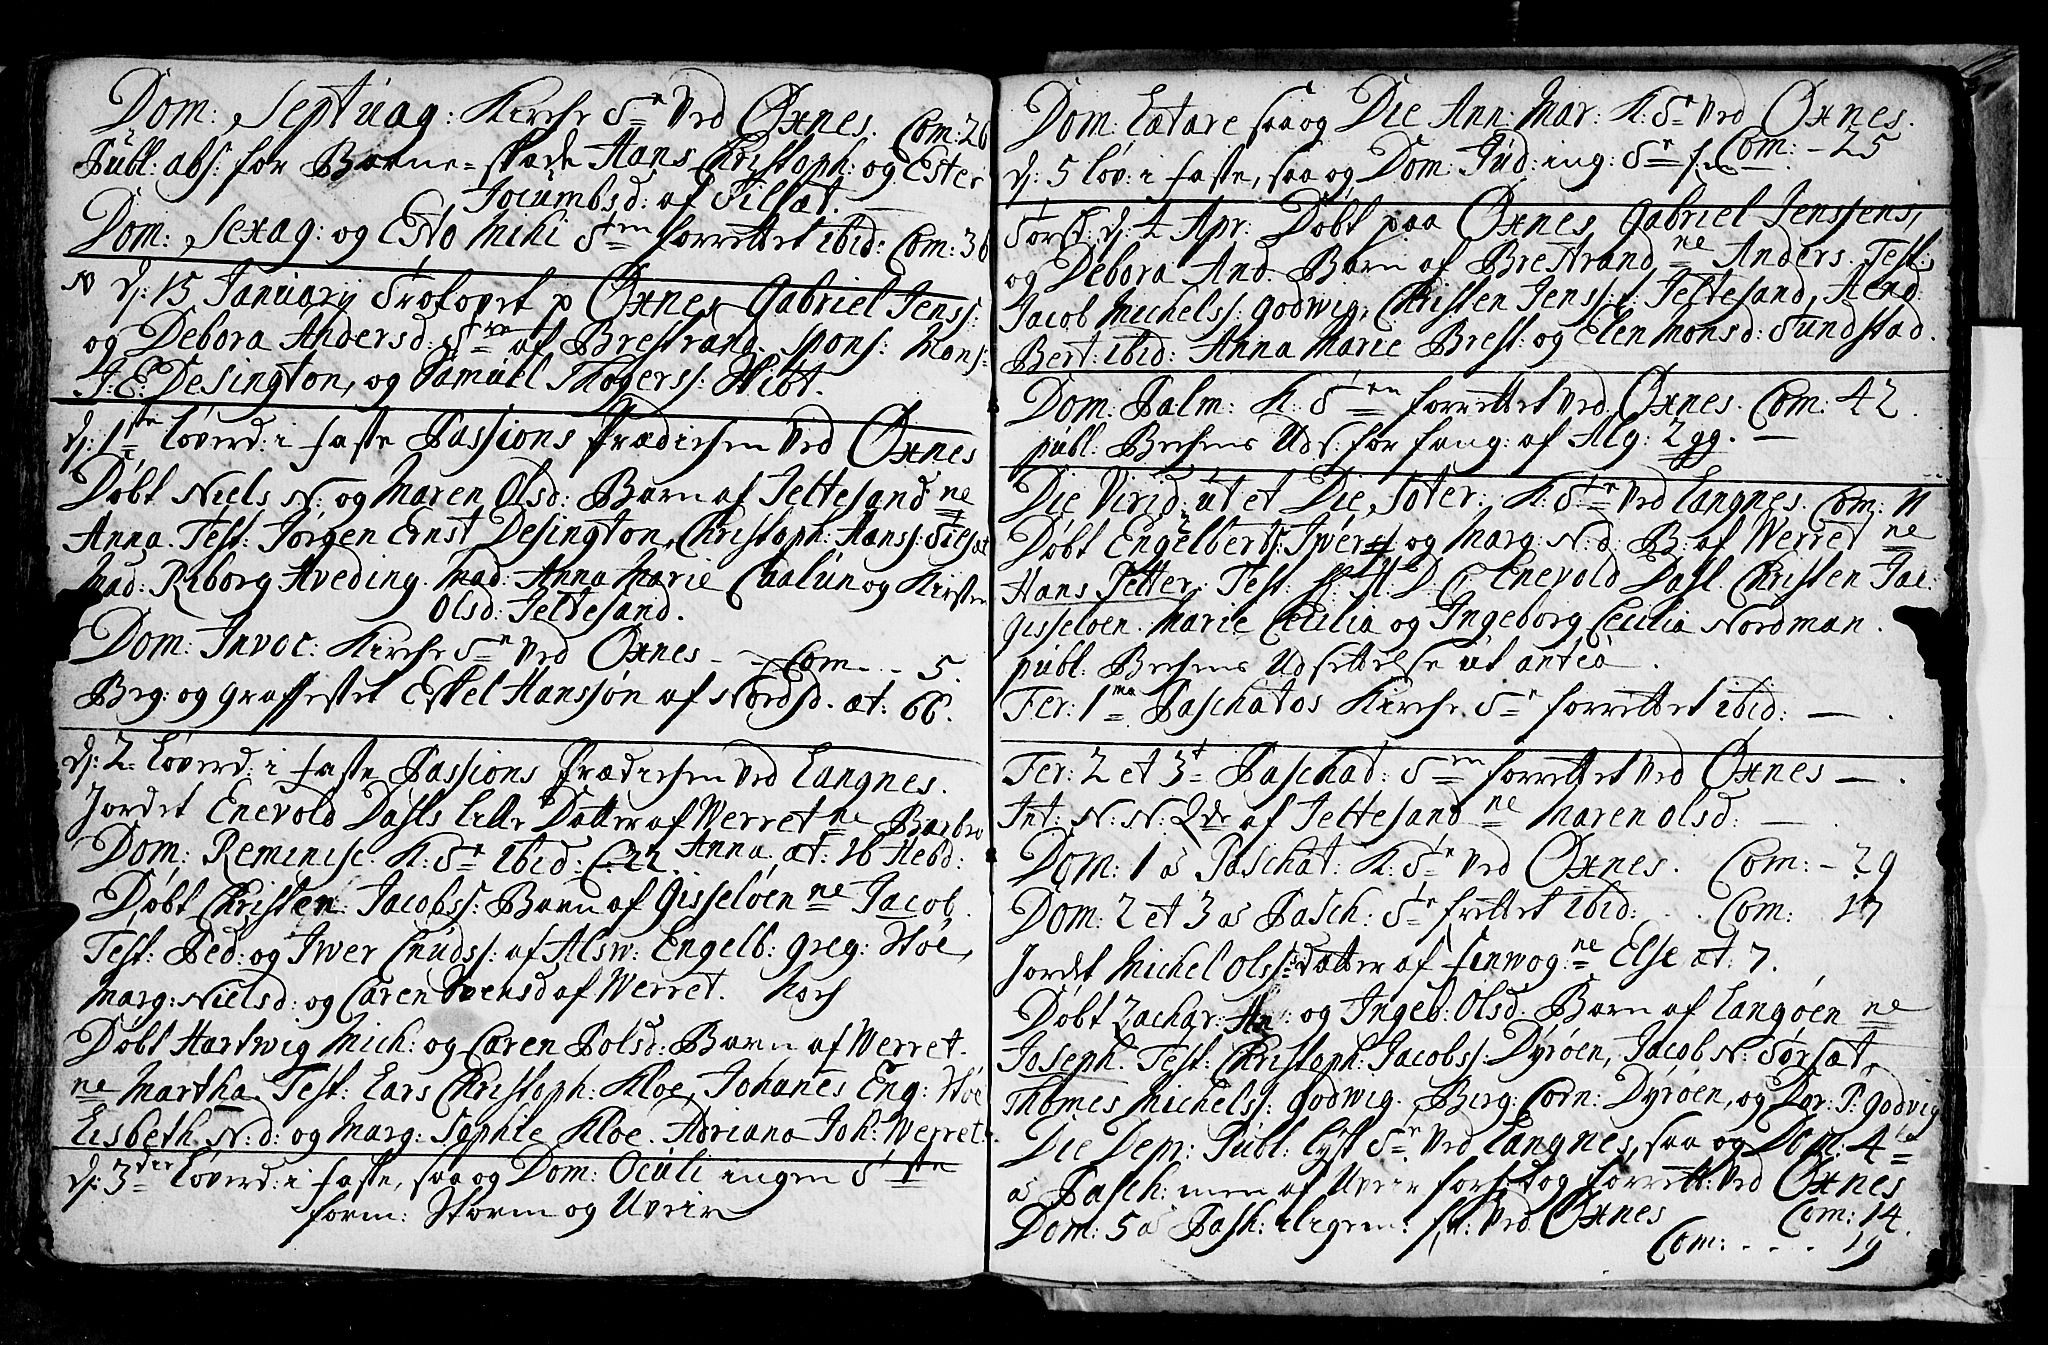 Dom: Septuag: Kirche S:n ved Øxnes. Com: 26
Publ: abs: for Barne-skade Hans Christoph: og Ester
Jocumbsd: af Tillæt.
Dom: Sexag: og Esto Mihi S:ten forrettet ibid: Com: 36
N d: 15 January Trolovet p Øxnes Gabriel Jenss:
og Debora Andersd: af Brestrand. Spons: Mons:
J. E. Desington, og Samuel Thogerss: Vibt.
d: 1ste Løverd: i faste Passions Prædichen ved Øxnes
Døbt Niels N: og Maren Olsd: Barn af Teltesand ne
Anna. Test: Jørgen Ernst Desington, Christoph: Hanss: Tilsæt
Mad: Riborg Hveding. Mad: Anna Marie Chalun og Kirsten
Olsd: Teltesand.
Dom: Invoc: Kirche S:n ved Øxnes - - Com - - 5.
Beg: og graffestet Eskel Hanssøn af Nordsd. æt: 66.
d: 2 Løverd: i faste Passions Prædichen ved Langnes.
Jordet Enevold Dahls lille Datter af Werret ne Barbro
Dom: Reminisc: K: S:n ibid: C: 22. Anna. æt: 16 Hebd:
Døbt Christen Jacobss: Barn af Gisseløen ne Jacob.
Test: Ped: og Iwer Cnudss: af Alsw: Engelb: Greg: Høe,
Marg: Nielsd: og Caren Svensd af Werret.
Døbt Hartwig Mich: og Caren Polsd: Barn af Werret.
ne Martha. Test: Lars Christoph: Kloe, Johanes Eng: Høe
Lisbeth N:d: og Marg: Sophie Kloe. Adriana Joh: Werret.
d: 3die Løverd: i faste, saa og Dom: Oculi ingen
form: Storm og Uveir
Dom: Lætare saa og Die Ann: Mar: K: S:n ved Øxnes.
d: 5 Løv: i faste, saa og Dom: Jud: ing: S:n Com: - 25
d: 2 Apr: Døbt paa Øxnes Gabriel Jenssens,
og Debora And. Barn af Brestrand ne Anders. Test:
Jacob Michelss: Godwig, Christen Jenss: Teltesand, Aend:
Bert: ibid: Anna Marie Brest: og Elen Monsd: Sundstad.
Dom: Palm: K: S:ten forrettet ved Øxnes. Com: 42.
publ: Bechens Uds: for fang: af Alg: 2 gg. —
Die Virid: ut et Die Soter: K: S:te ved Langnes. Com: 11
Døbt Engelbert Iwers: og Marg: N:d: B: af Werret ne
Hans Petter. Test: H: D: C: Enevold Dahl. Christen Jac:
Gisseløen. Marie Cecilia og Ingeborg Cecilia Nordman.
publ: Bechens Udsettelse ut antea.
Fer: 1ma Paschatos Kirche S:n forrettet ibid: —
Fer: 2 et 3t Paschat: S:en forrettet ved Øxnes —.
Int: N: N: 2de af Teltesand ne Maren Olsd: —.
Dom: 1 a Paschat: K: S:n ved Øxnes. Com: - 29
Dom: 2 et 3 a Pasch: S:n frettet ibid: . . Com: 17
Jordet Michel Olss: datter af Finwog: ne Else æt: 7.
Døbt Zachar: An: og Ingeb: Olsd. Barn af Langøen ne
Joseph. Test: Christoph: Jacobss: Dyrøen, Jacob N: Sørsæt,
Thomes Michelss: Godwig. Berg: Corn: Dyrøen, og Dor: P: Godvig
Die Dep: Publ: Lyst S:n ved Langnes, saa og Dom: 4ta
a Pasch: men af Uveir forrett: ved Øxnes
Dom: 5 a Pash: ved Øxnes Com: 14.
Com: . . . . 19